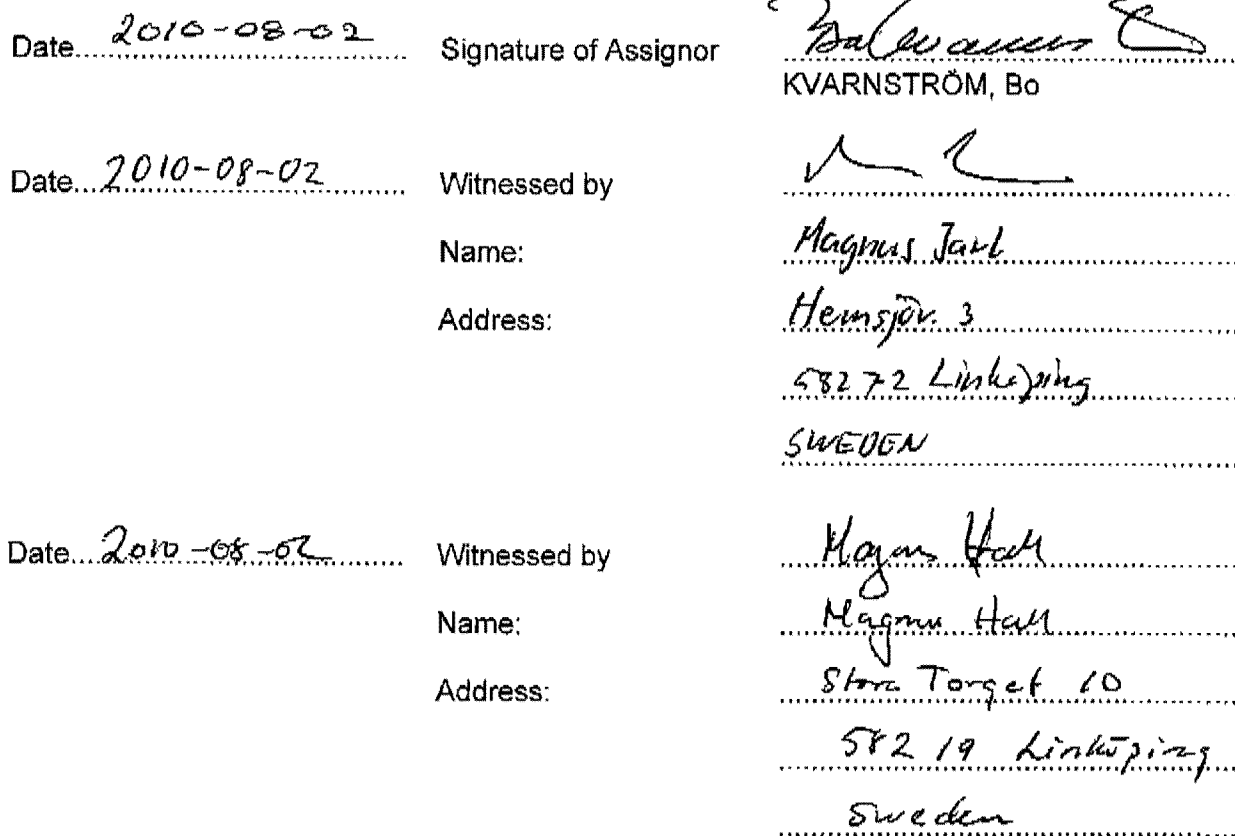 Date 2010-08-02 Signature of Assignor
KVARNSTRÖM, Bo
Date 2010-08-02 Witnessed by
Name: Magnus Jarl
Address: Hemsjöv. 3
582 72 Linköping
SWEDEN
Date 2010-08-02 Witnessed by Magnus Hall
Name: Magnus Hall
Address: Stora Torget 10
582 19 Linköping
Sweden